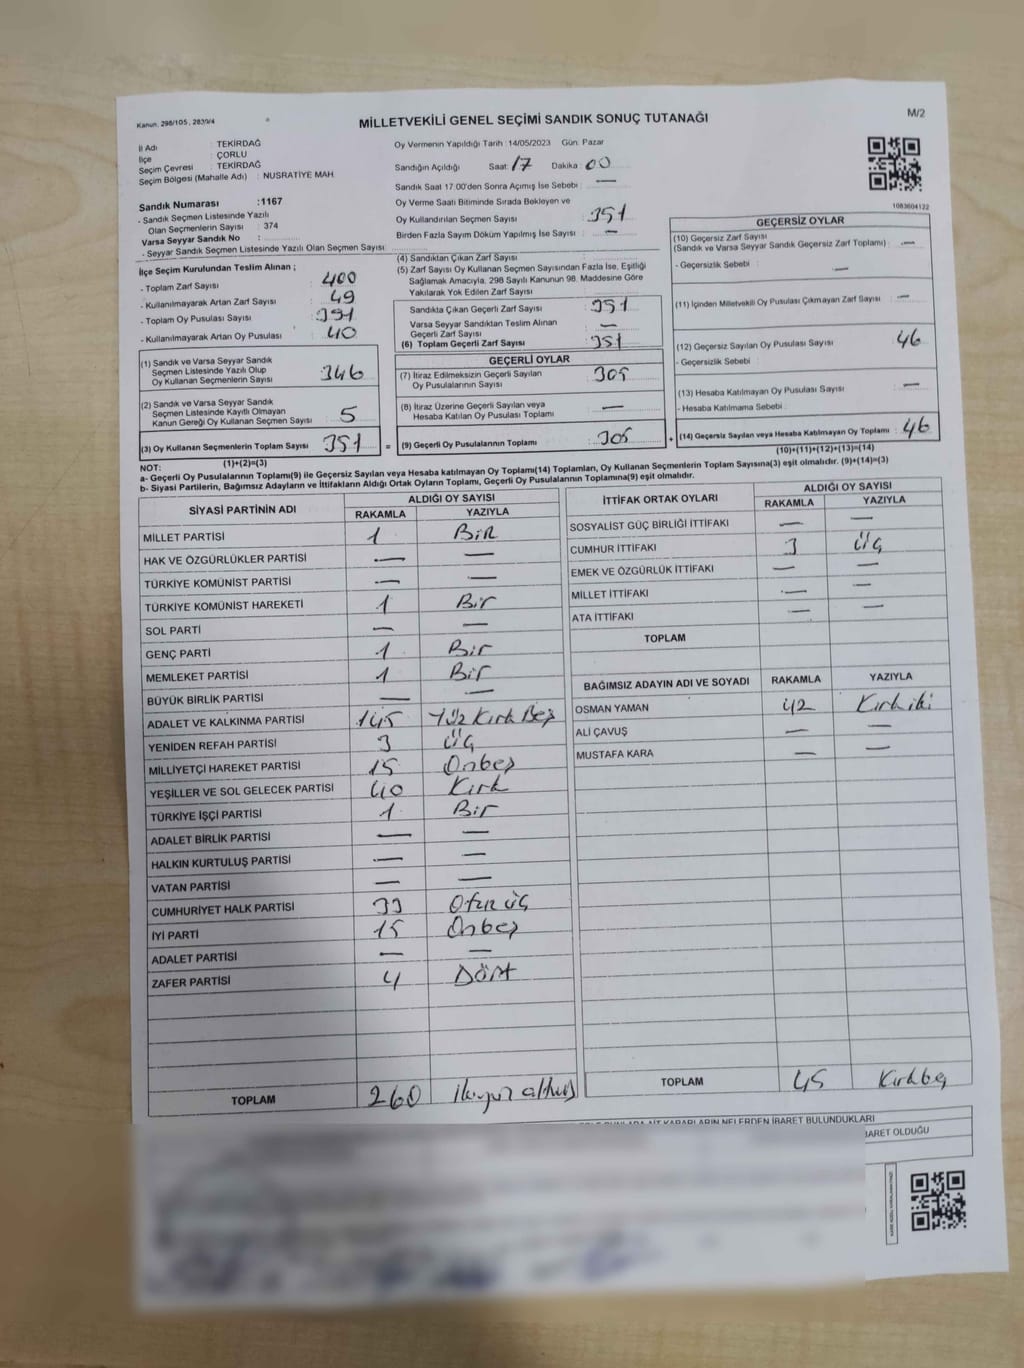 Kanun. 298/105, 2839/4
MİLLETVEKİLİ GENEL SEÇİMİ SANDIK SONUÇ TUTANAĞI
M/2
İl Adı : TEKİRDAĞ
İlçe : ÇORLU
Seçim Çevresi : TEKİRDAĞ
Seçim Bölgesi (Mahalle Adı) : NUSRATİYE MAH.
Sandık Numarası : 1167
- Sandık Seçmen Listesinde Yazılı
Olan Seçmenlerin Sayısı : 374
Varsa Seyyar Sandık No :
- Seyyar Sandık Seçmen Listesinde Yazılı Olan Seçmen Sayısı:
Oy Vermenin Yapıldığı Tarih : 14/05/2023 Gün: Pazar
Sandığın Açıldığı Saat: 17 Dakika : 00
Sandık Saat 17.00'den Sonra Açımış İse Sebebi : —
Oy Verme Saati Bitiminde Sırada Bekleyen ve
Oy Kullandırılan Seçmen Sayısı : 351
Birden Fazla Sayım Döküm Yapılmış İse Sayısı : —
1083604122
İlçe Seçim Kurulundan Teslim Alınan ;
- Toplam Zarf Sayısı : 400
- Kullanılmayarak Artan Zarf Sayısı : 49
- Toplam Oy Pusulası Sayısı : 391
- Kullanılmayarak Artan Oy Pusulası : 40
(1) Sandık ve Varsa Seyyar Sandık
Seçmen Listesinde Yazılı Olup
Oy Kullanan Seçmenlerin Sayısı : 346
(2) Sandık ve Varsa Seyyar Sandık
Seçmen Listesinde Kayıtlı Olmayan
Kanun Gereği Oy Kullanan Seçmen Sayısı : 5
(3) Oy Kullanan Seçmenlerin Toplam Sayısı : 351 =
(1)+(2)=(3)
(4) Sandıktan Çıkan Zarf Sayısı :
(5) Zarf Sayısı Oy Kullanan Seçmen Sayısından Fazla İse, Eşitliği
Sağlamak Amacıyla, 298 Sayılı Kanunun 98. Maddesine Göre
Yakılarak Yok Edilen Zarf Sayısı :
Sandıkta Çıkan Geçerli Zarf Sayısı : 351
Varsa Seyyar Sandıktan Teslim Alınan
Geçerli Zarf Sayısı : —
(6) Toplam Geçerli Zarf Sayısı : 351
GEÇERLİ OYLAR
(7) İtiraz Edilmeksizin Geçerli Sayılan
Oy Pusulalarının Sayısı : 305
(8) İtiraz Üzerine Geçerli Sayılan veya
Hesaba Katılan Oy Pusulası Toplamı : —
(9) Geçerli Oy Pusulalarının Toplamı : 305 +
GEÇERSİZ OYLAR
(10) Geçersiz Zarf Sayısı
(Sandık ve Varsa Seyyar Sandık Geçersiz Zarf Toplamı) : —
- Geçersizlik Sebebi : —
(11) İçinden Milletvekili Oy Pusulası Çıkmayan Zarf Sayısı : —
(12) Geçersiz Sayılan Oy Pusulası Sayısı : 46
- Geçersizlik Sebebi :
(13) Hesaba Katılmayan Oy Pusulası Sayısı : —
- Hesaba Katılmama Sebebi :
(14) Geçersiz Sayılan veya Hesaba Katılmayan Oy Toplamı : 46
(10)+(11)+(12)+(13)=(14)
NOT:
a- Geçerli Oy Pusulalarının Toplamı(9) ile Geçersiz Sayılan veya Hesaba katılmayan Oy Toplamı(14) Toplamları, Oy Kullanan Seçmenlerin Toplam Sayısına(3) eşit olmalıdır. (9)+(14)=(3)
b- Siyasi Partilerin, Bağımsız Adayların ve İttifakların Aldığı Ortak Oyların Toplamı, Geçerli Oy Pusulalarının Toplamına(9) eşit olmalıdır.
SİYASİ PARTİNİN ADI ALDIĞI OY SAYISI
RAKAMLA YAZIYLA
MİLLET PARTİSİ 1 BiR
HAK VE ÖZGÜRLÜKLER PARTİSİ — —
TÜRKİYE KOMÜNİST PARTİSİ — —
TÜRKİYE KOMÜNİST HAREKETİ 1 Bir
SOL PARTİ — —
GENÇ PARTİ 1 Bir
MEMLEKET PARTİSİ 1 Bir
BÜYÜK BİRLİK PARTİSİ — —
ADALET VE KALKINMA PARTİSİ 145 Yüz Kırk Beş
YENİDEN REFAH PARTİSİ 3 Üç
MİLLİYETÇİ HAREKET PARTİSİ 15 Onbeş
YEŞİLLER VE SOL GELECEK PARTİSİ 40 Kırk
TÜRKİYE İŞÇİ PARTİSİ 1 Bir
ADALET BİRLİK PARTİSİ — —
HALKIN KURTULUŞ PARTİSİ — —
VATAN PARTİSİ — —
CUMHURİYET HALK PARTİSİ 33 Otuz üç
İYİ PARTİ 15 Onbeş
ADALET PARTİSİ — —
ZAFER PARTİSİ 4 Dört
TOPLAM 260 ikiyüz altmış
İTTİFAK ORTAK OYLARI ALDIĞI OY SAYISI
RAKAMLA YAZIYLA
SOSYALİST GÜÇ BİRLİĞİ İTTİFAKI — —
CUMHUR İTTİFAKI 3 üç
EMEK VE ÖZGÜRLÜK İTTİFAKI — —
MİLLET İTTİFAKI — —
ATA İTTİFAKI — —
TOPLAM
BAĞIMSIZ ADAYIN ADI VE SOYADI RAKAMLA YAZIYLA
OSMAN YAMAN 42 Kırkiki
ALİ ÇAVUŞ — —
MUSTAFA KARA — —
TOPLAM 45 Kırkbeş
KARARLARIN NELERDEN İBARET BULUNDUKLARI
İBARET OLDUĞU